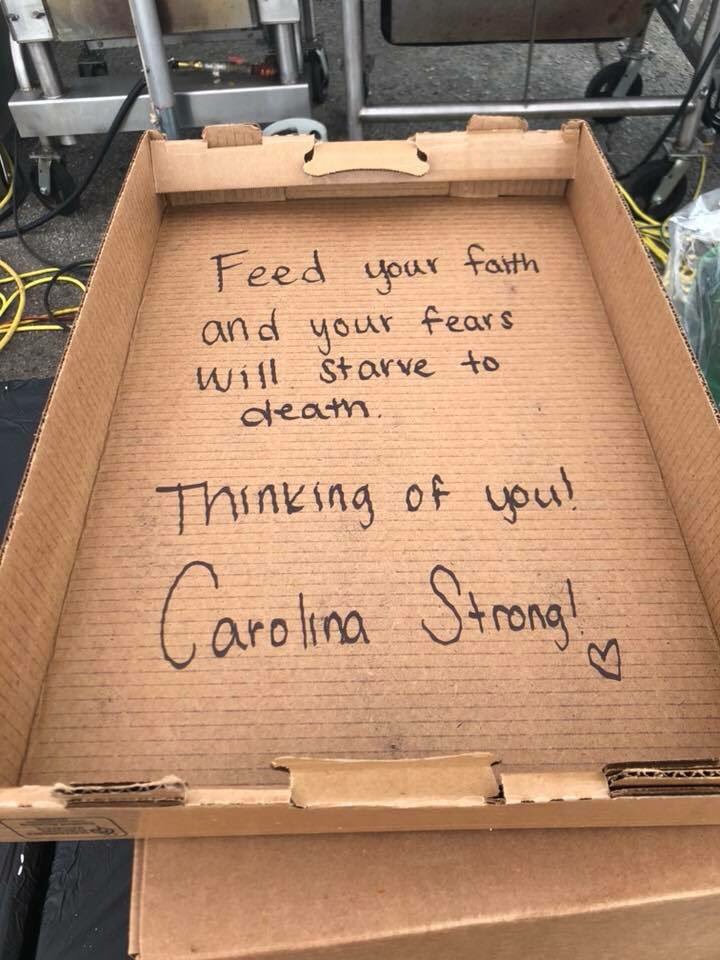 Feed your faith
and your fears
will starve to
death.
Thinking of you!
Carolina Strong!